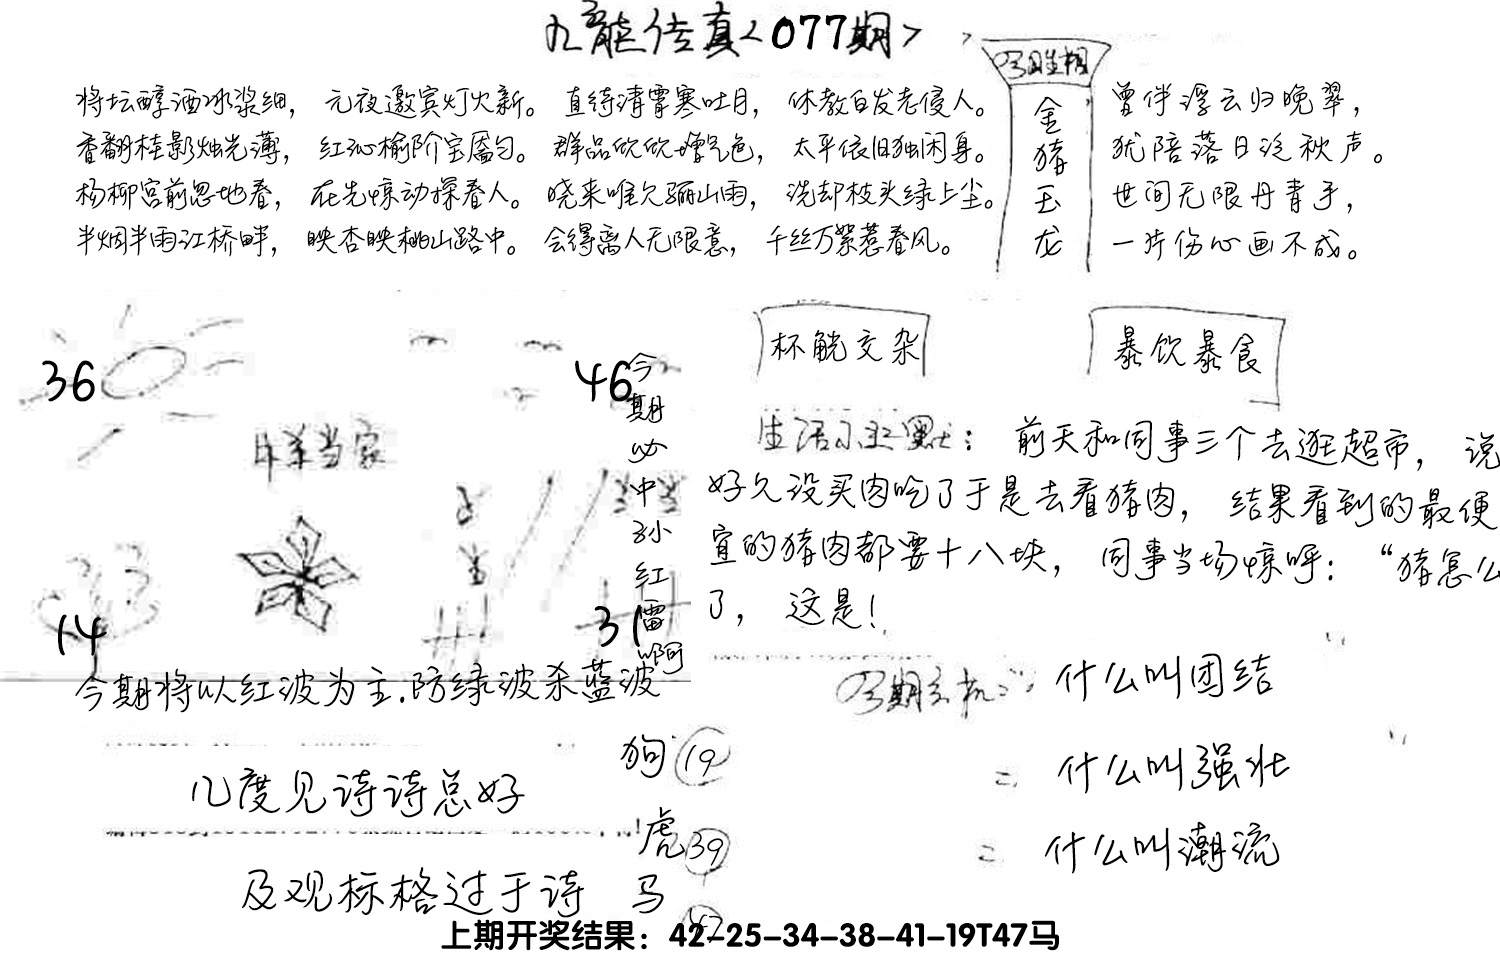 九龙传真<077期>
将坛醇酒冰浆细， 元夜邀宾灯火新。 直待清霄寒吐月， 休教白发老侵人。
香翻桂影烛光薄， 红沁榆阶宝靥匀。 群品欣欣增气色， 太平依旧独闲身。
杨柳宫前忽地春， 在先惊动探春人。 晓来唯欠骊山雨， 洗却枝头绿上尘。
半烟半雨江桥畔， 映杏映桃山路中。 会得离人无限意， 千丝万絮惹春风。
今日生相
金猪玉龙
曾伴浮云归晚翠，
犹陪落日泛秋声。
世间无限丹青手，
一片伤心画不成。
36
46
羊当家
14
31
今期必中孙红雷啊
今期将以红波为主.防绿波杀蓝波
杯觥交杂
暴饮暴食
生活小幽默： 前天和同事三个去逛超市， 说
好久没买肉吃了于是去看猪肉， 结果看到的最便
宜的猪肉都要十八块， 同事当场惊呼：“猪怎么
了， 这是！
今期玄机： 什么叫团结
= 什么叫强壮
= 什么叫潮流
几度见诗诗总好
及观标格过于诗
狗 19
虎 39
马
上期开奖结果：42-25-34-38-41-19T47马